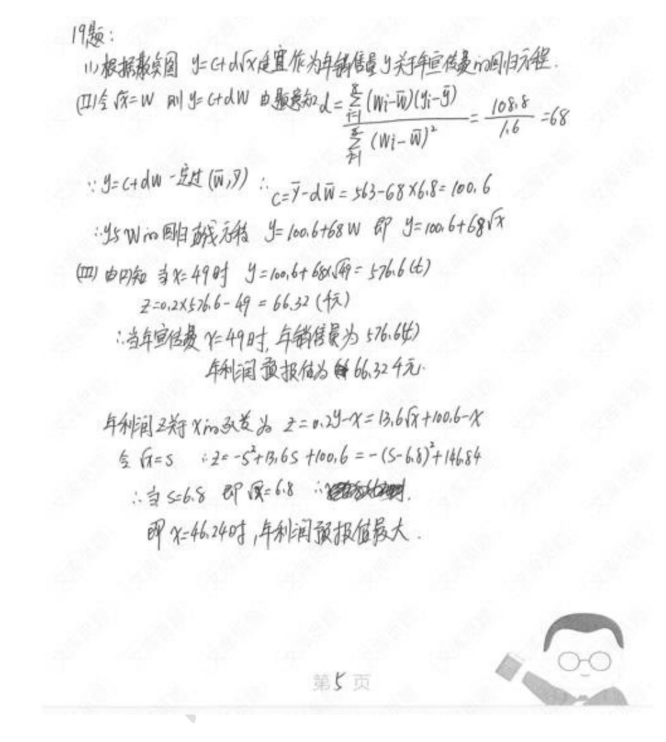 19题:
(1) 根据散点图 y=c+d√x 适宜作为年销售量y关于年宣传费x的回归方程.
(II)令√x=W 则y=c+dW 由题意知 d= \frac{\sum_{i=1}^{8}(Wi-W̄)(yi-ȳ)}{\sum_{i=1}^{8}(Wi-W̄)²} = \frac{108.8}{1.6} =68
∵y=c+dw 一定过(w̄,ȳ) ∴ c=ȳ-dw̄=563-68×6.8=100.6
∴y与W的回归直线方程 y=100.6+68W 即 y=100.6+68√x
(III) 由(II)知 当x=49时 y=100.6+68×√49=576.6(t)
z=0.2×576.6-49=66.32(千元)
∴当年宣传费x=49时,年销售量为576.6(t)
年利润预报值为66.32千元.
年利润z关于x的 为 z=0.2y-x=13.6√x+100.6-x
令√x=s ∴z=-s²+13.6s+100.6=-(s-6.8)²+146.84
∴当s=6.8 即√x=6.8 ∴
即x=46.24时,年利润预报值最大.
第5页